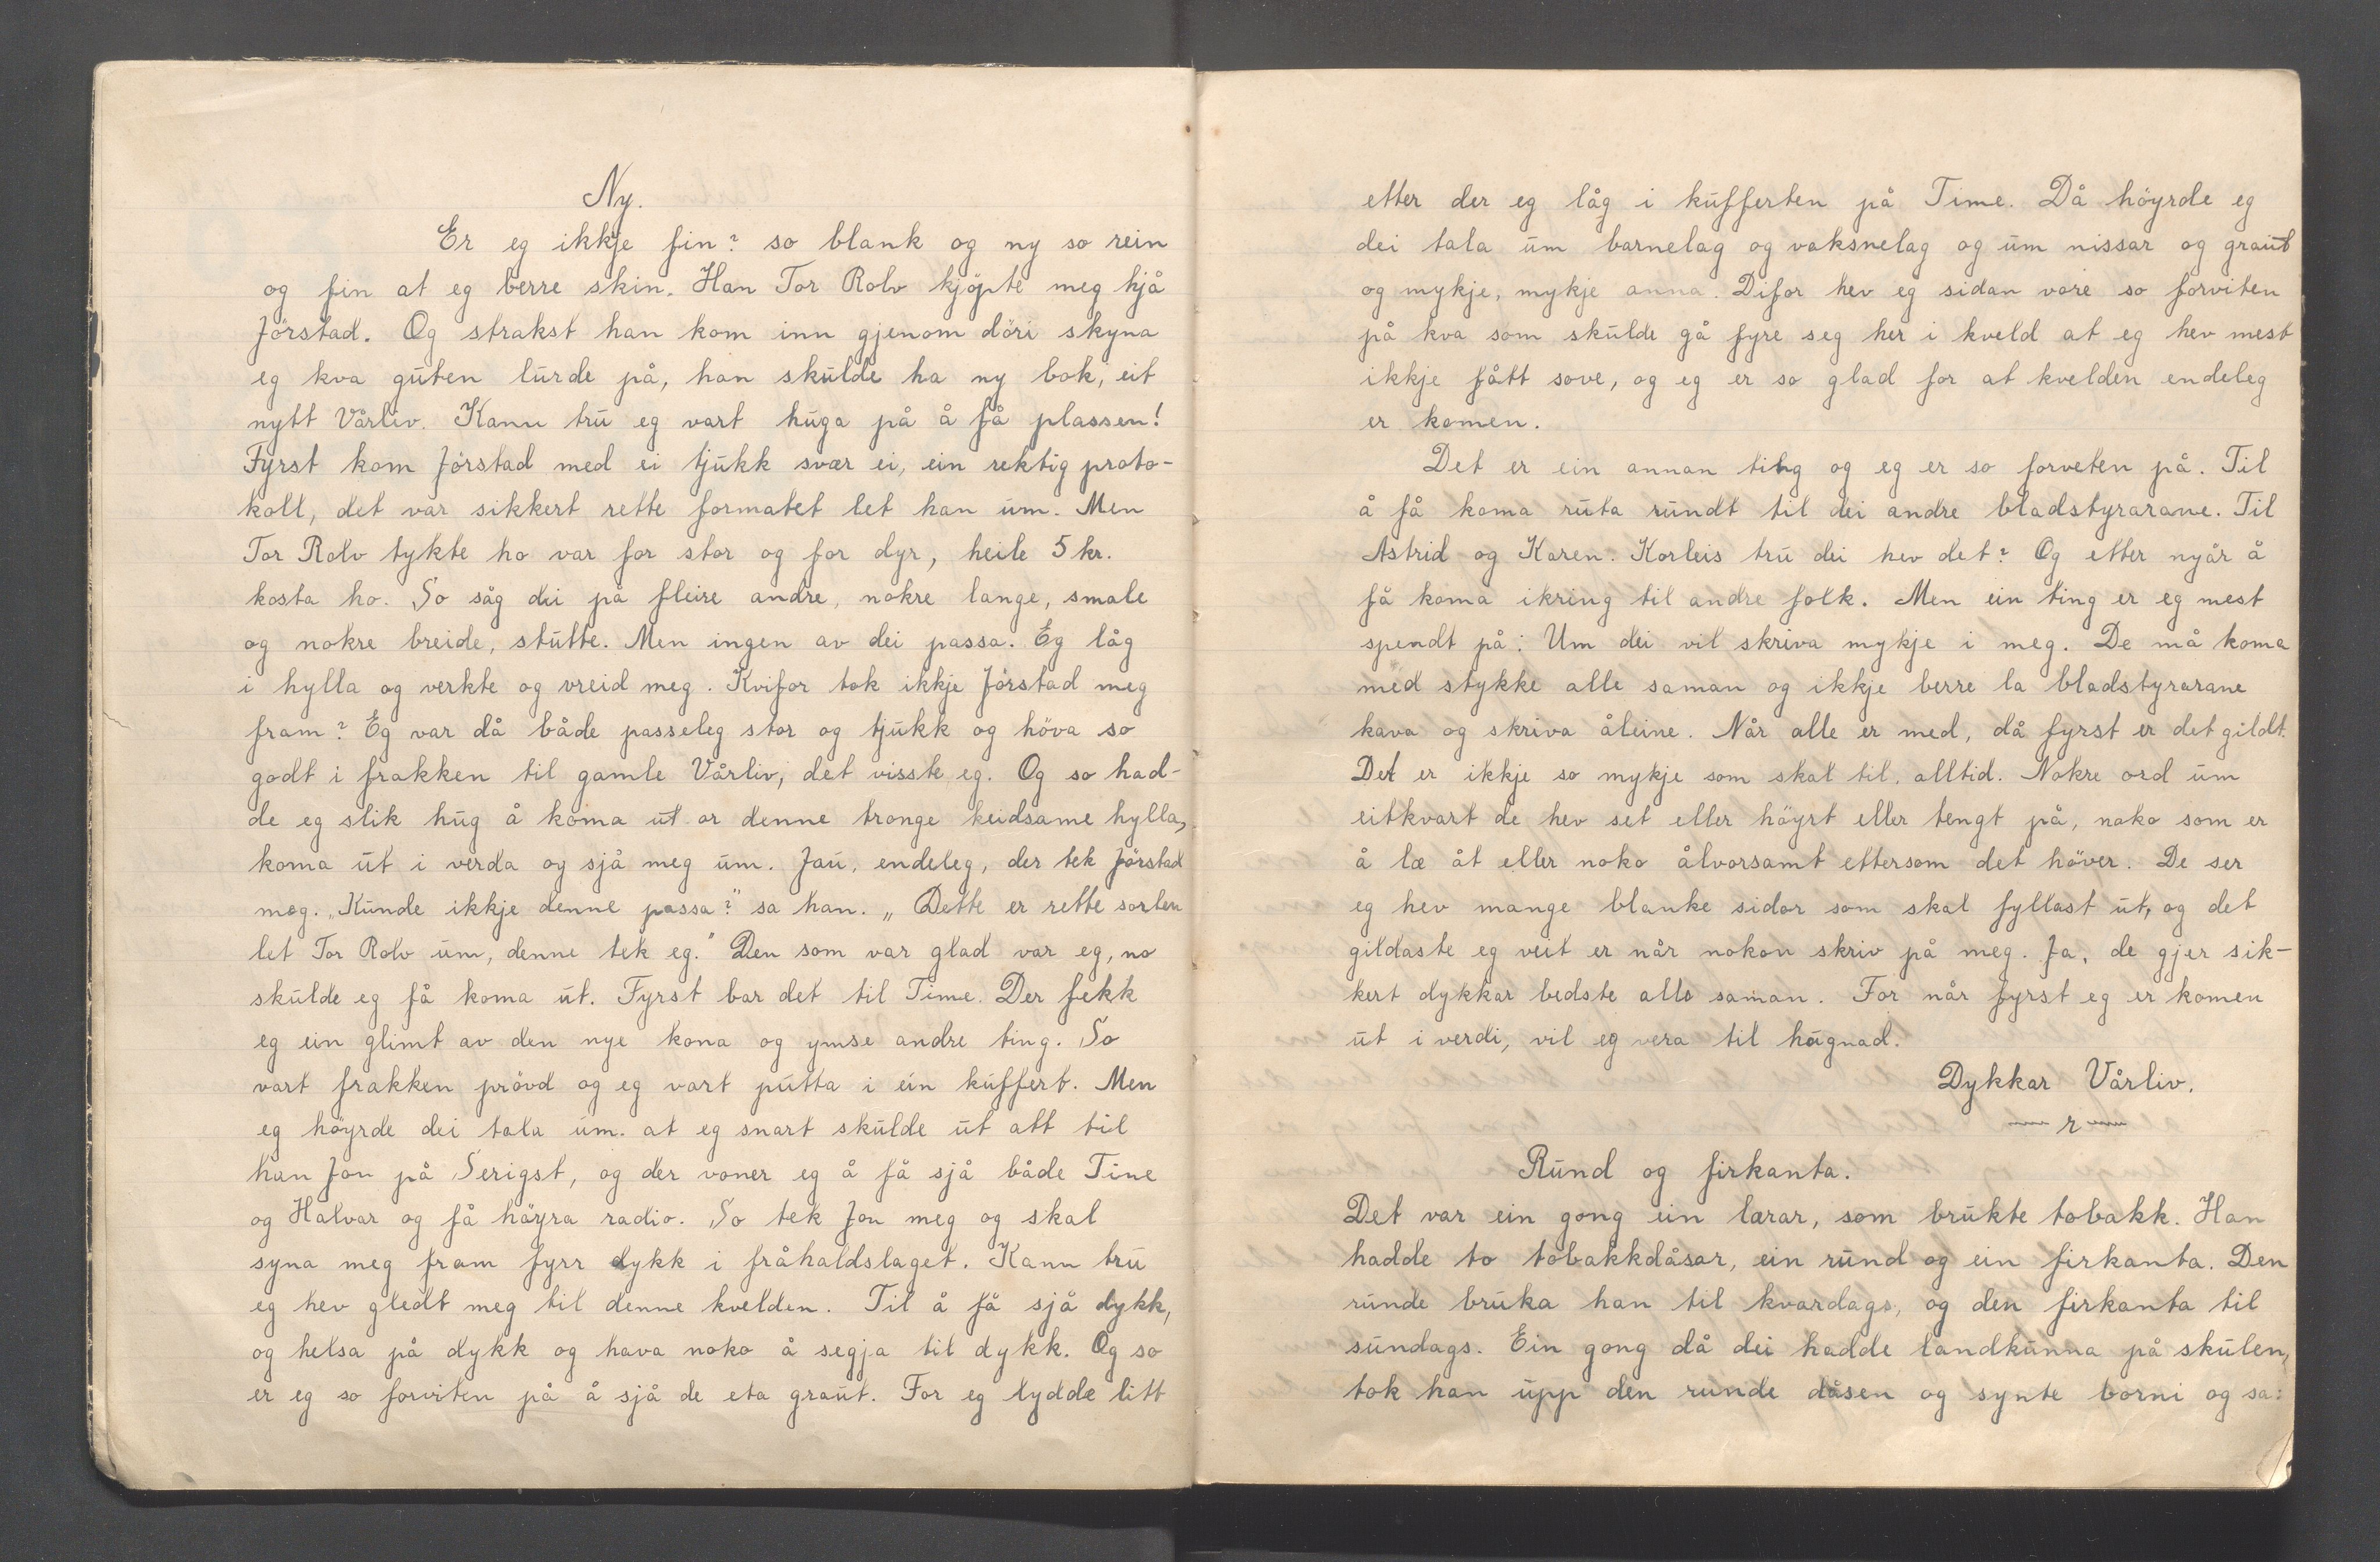 Ny.
Er eg ikkje fin? so blank og ny so rein
og fin at eg berre skin. Han Tor Rolv kjöpte meg hjå
Jörstad. Og strakst han kom inn gjenom döri skyna
eg kva guten lurde på, han skulde ha ny bok, eit
nytt Vårliv. Kann tru eg vart huga på å få plassen!
Fyrst kom Jörstad med ei tjukk svær ei, ein rektig proto-
koll, det var sikkert rette formatet let han um. Men
Tor Rolv tykte ho var for stor og for dyr, heile 5 kr.
kosta ho. So såg dei på fleire andre, nokre lange, smale
og nokre breide, stutte. Men ingen av dei passa. Eg låg
i hylla og verkte og vreid meg. Kvifor tok ikkje Jörstad meg
fram? Eg var då både passeleg stor og tjukk og höva so
godt i frakken til gamle Vårliv, det visste eg. Og so had-
de eg slik hug å koma ut or denne tronge keidsame hylla,
koma ut i verda og sjå meg um. Jau, endeleg, der tek Jörstad
meg. „Kunde ikkje denne passa?" sa han. „Dette er rette sorten
let Tor Rolv um, denne tek eg." Den som var glad var eg, no
skulde eg få koma ut. Fyrst bar det til Time. Der fekk
eg ein glimt av den nye kona og ymse andre ting. So
vart frakken prövd og eg vart putta i ein kuffert. Men
eg höyrde dei tala um. at eg snart skulde ut att til
han Jon på Serigst, og der voner eg å få sjå både Tine
og Halvar og få höyra radio. So tek Jon meg og skal
syna meg fram fyrr dykk i fråhaldslaget. Kann tru
eg hev gledt meg til denne kvelden. Til å få sjå dykk,
og helsa på dykk og hava noko å segja til dykk. Og so
er eg so forviten på å sjå de eta graut. For eg lydde litt
etter der eg låg i kufferten på Time. Då höyrde eg
dei tala um barnelag og vaksnelag og um nissar og graut
og mykje, mykje anna. Difor hev eg sidan vore so forviten
på kva som skulde gå fyre seg her i kveld at eg hev mest
ikkje fått sove, og eg er so glad for at kvelden endeleg
er komen.
Det er ein annan ting og eg er so forveten på. Til
å få koma ruta rundt til dei andre bladstyrarane. Til
Astrid og Karen. Korleis tru dei hev det? Og etter nyår å
få koma ikring til andre folk. Men ein ting er eg mest
spendt på: Um dei vil skriva mykje i meg. De må koma
med stykke alle saman og ikkje berre la bladstyrarane
kava og skriva åleine. Når alle er med, då fyrst er det gildt.
Det er ikkje so mykje som skal til. alltid. Nokre ord um
eitkvart de hev set eller höyrt eller tengt på, noko som er
å læ åt eller noko ålvorsamt ettersom det höver. De ser
eg hev mange blanke sidor som skal fyllast ut, og det
gildaste eg veit er når nokon skriv på meg. Ja, de gjer sik-
kert dykkar bedste alle saman. For når fyrst eg er komen
ut i verdi, vil eg vera til hugnad.
Dykkar Vårliv.
r
Rund og firkanta.
Det var ein gong ein lærar, som brukte tobakk. Han
hadde to tobakkdåsar, ein rund og ein firkanta. Den
runde bruka han til kvardags, og den firkanta til
sundags. Ein gong då dei hadde landkunna på skulen,
tok han upp den runde dåsen og synte borni og sa: